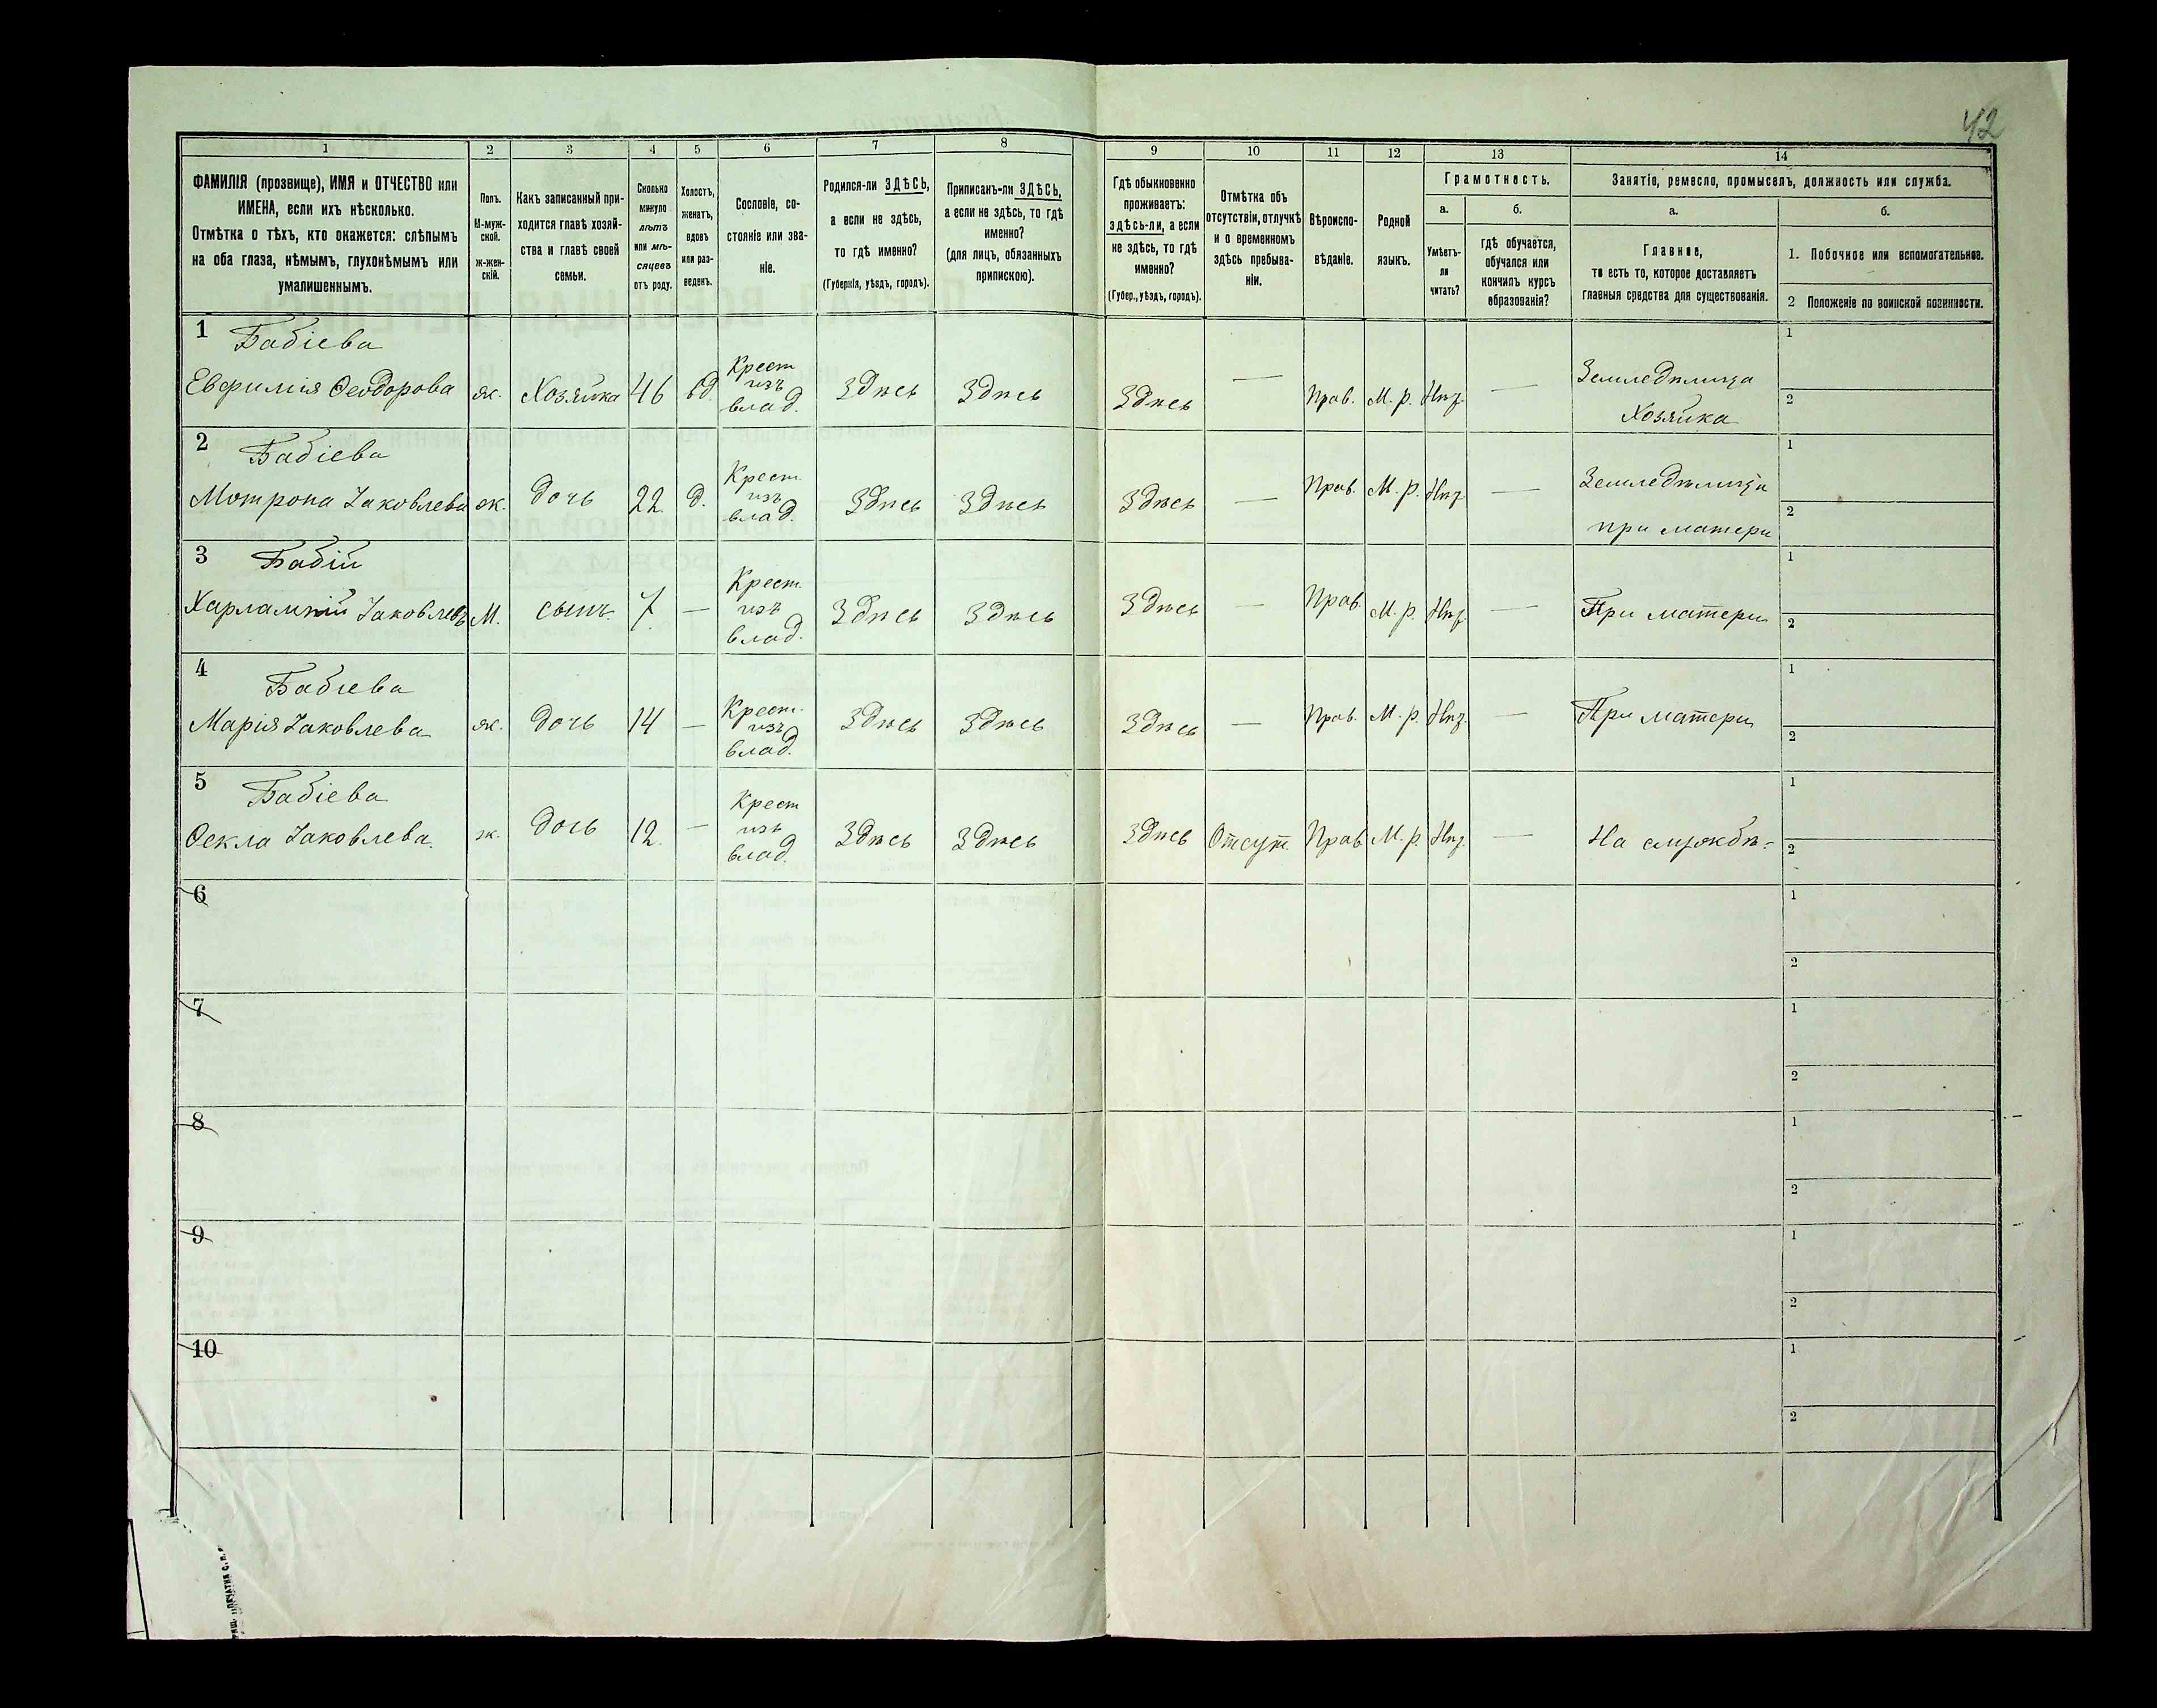 42
1 2 3 4 5 6 7 8 9 10 11 12 13 14
ФАМИЛІЯ (прозвище), ИМЯ и ОТЧЕСТВО или
ИМЕНА, если ихъ нѣсколько.
Отмѣтка о тѣхъ, кто окажется: слѣпымъ
на оба глаза, нѣмымъ, глухонѣмымъ или
умалишеннымъ.
Полъ.
М-муж-
ской.
ж-жен-
скій.
Какъ записанный при-
ходится главѣ хозяй-
ства и главѣ своей
семьи.
Сколько
минуло
лѣтъ
или мѣ-
сяцевъ
отъ роду.
Холостъ,
женатъ,
вдовъ
или раз-
веденъ.
Сословіе, со-
стояніе или зва-
ніе.
Родился-ли ЗДѢСЬ,
а если не здѣсь,
то гдѣ именно?
(Губернія, уѣздъ, городъ).
Приписанъ-ли ЗДѢСЬ,
а если не здѣсь, то гдѣ
именно?
(для лицъ, обязанныхъ
припискою).
Гдѣ обыкновенно
проживаетъ:
здѣсь-ли, а если
не здѣсь, то гдѣ
именно?
(Губер., уѣздъ, городъ).
Отмѣтка объ
отсутствіи, отлучкѣ
и о временномъ
здѣсь пребыва-
ніи.
Вѣроиспо-
вѣданіе.
Родной
языкъ.
Грамотность.
а.
Умѣетъ-
ли
читать?
б.
гдѣ обучается,
обучался или
кончилъ курсъ
образованія?
Занятіе, ремесло, промыселъ, должность или служба.
а.
Главное,
то есть то, которое доставляетъ
главныя средства для существованія.
б.
1. Побочное или вспомогательное.
2 Положеніе по воинской повинности.
1 Бабіева
Евфимія Ѳеодорова ж. Хозяйка 46 вд. Крест изъ влад. Здѣсь Здѣсь Здѣсь — Прав. М. р. Нѣт. — Земледѣлица
Хозяйка
1
2
2 Бабіева
Мотрона Іаковлева ж. дочь 22. д. Крест. изъ влад. Здѣсь Здѣсь Здѣсь — Прав. М. р. Нѣт. — Земледѣлица
при матери
1
2
3 Бабій
Харлампій Іаковлевъ М. сынъ. 7. — Крест. изъ влад. Здѣсь Здѣсь Здѣсь — Прав. М. р. Нѣт. — При матери
1
2
4 Бабіева
Марія Іаковлева ж. дочь 14 — Крест. изъ влад. Здѣсь Здѣсь Здѣсь — Прав. М. р. Нѣт. — При матери
1
2
5 Бабіева
Ѳекла Іаковлева. ж. дочь 12. — Крест изъ влад. Здѣсь Здѣсь Здѣсь Отсут. Прав. М. р. Нѣт. — На службѣ.
1
2
6
1
2
7
1
2
8
1
2
9
1
2
10
1
2